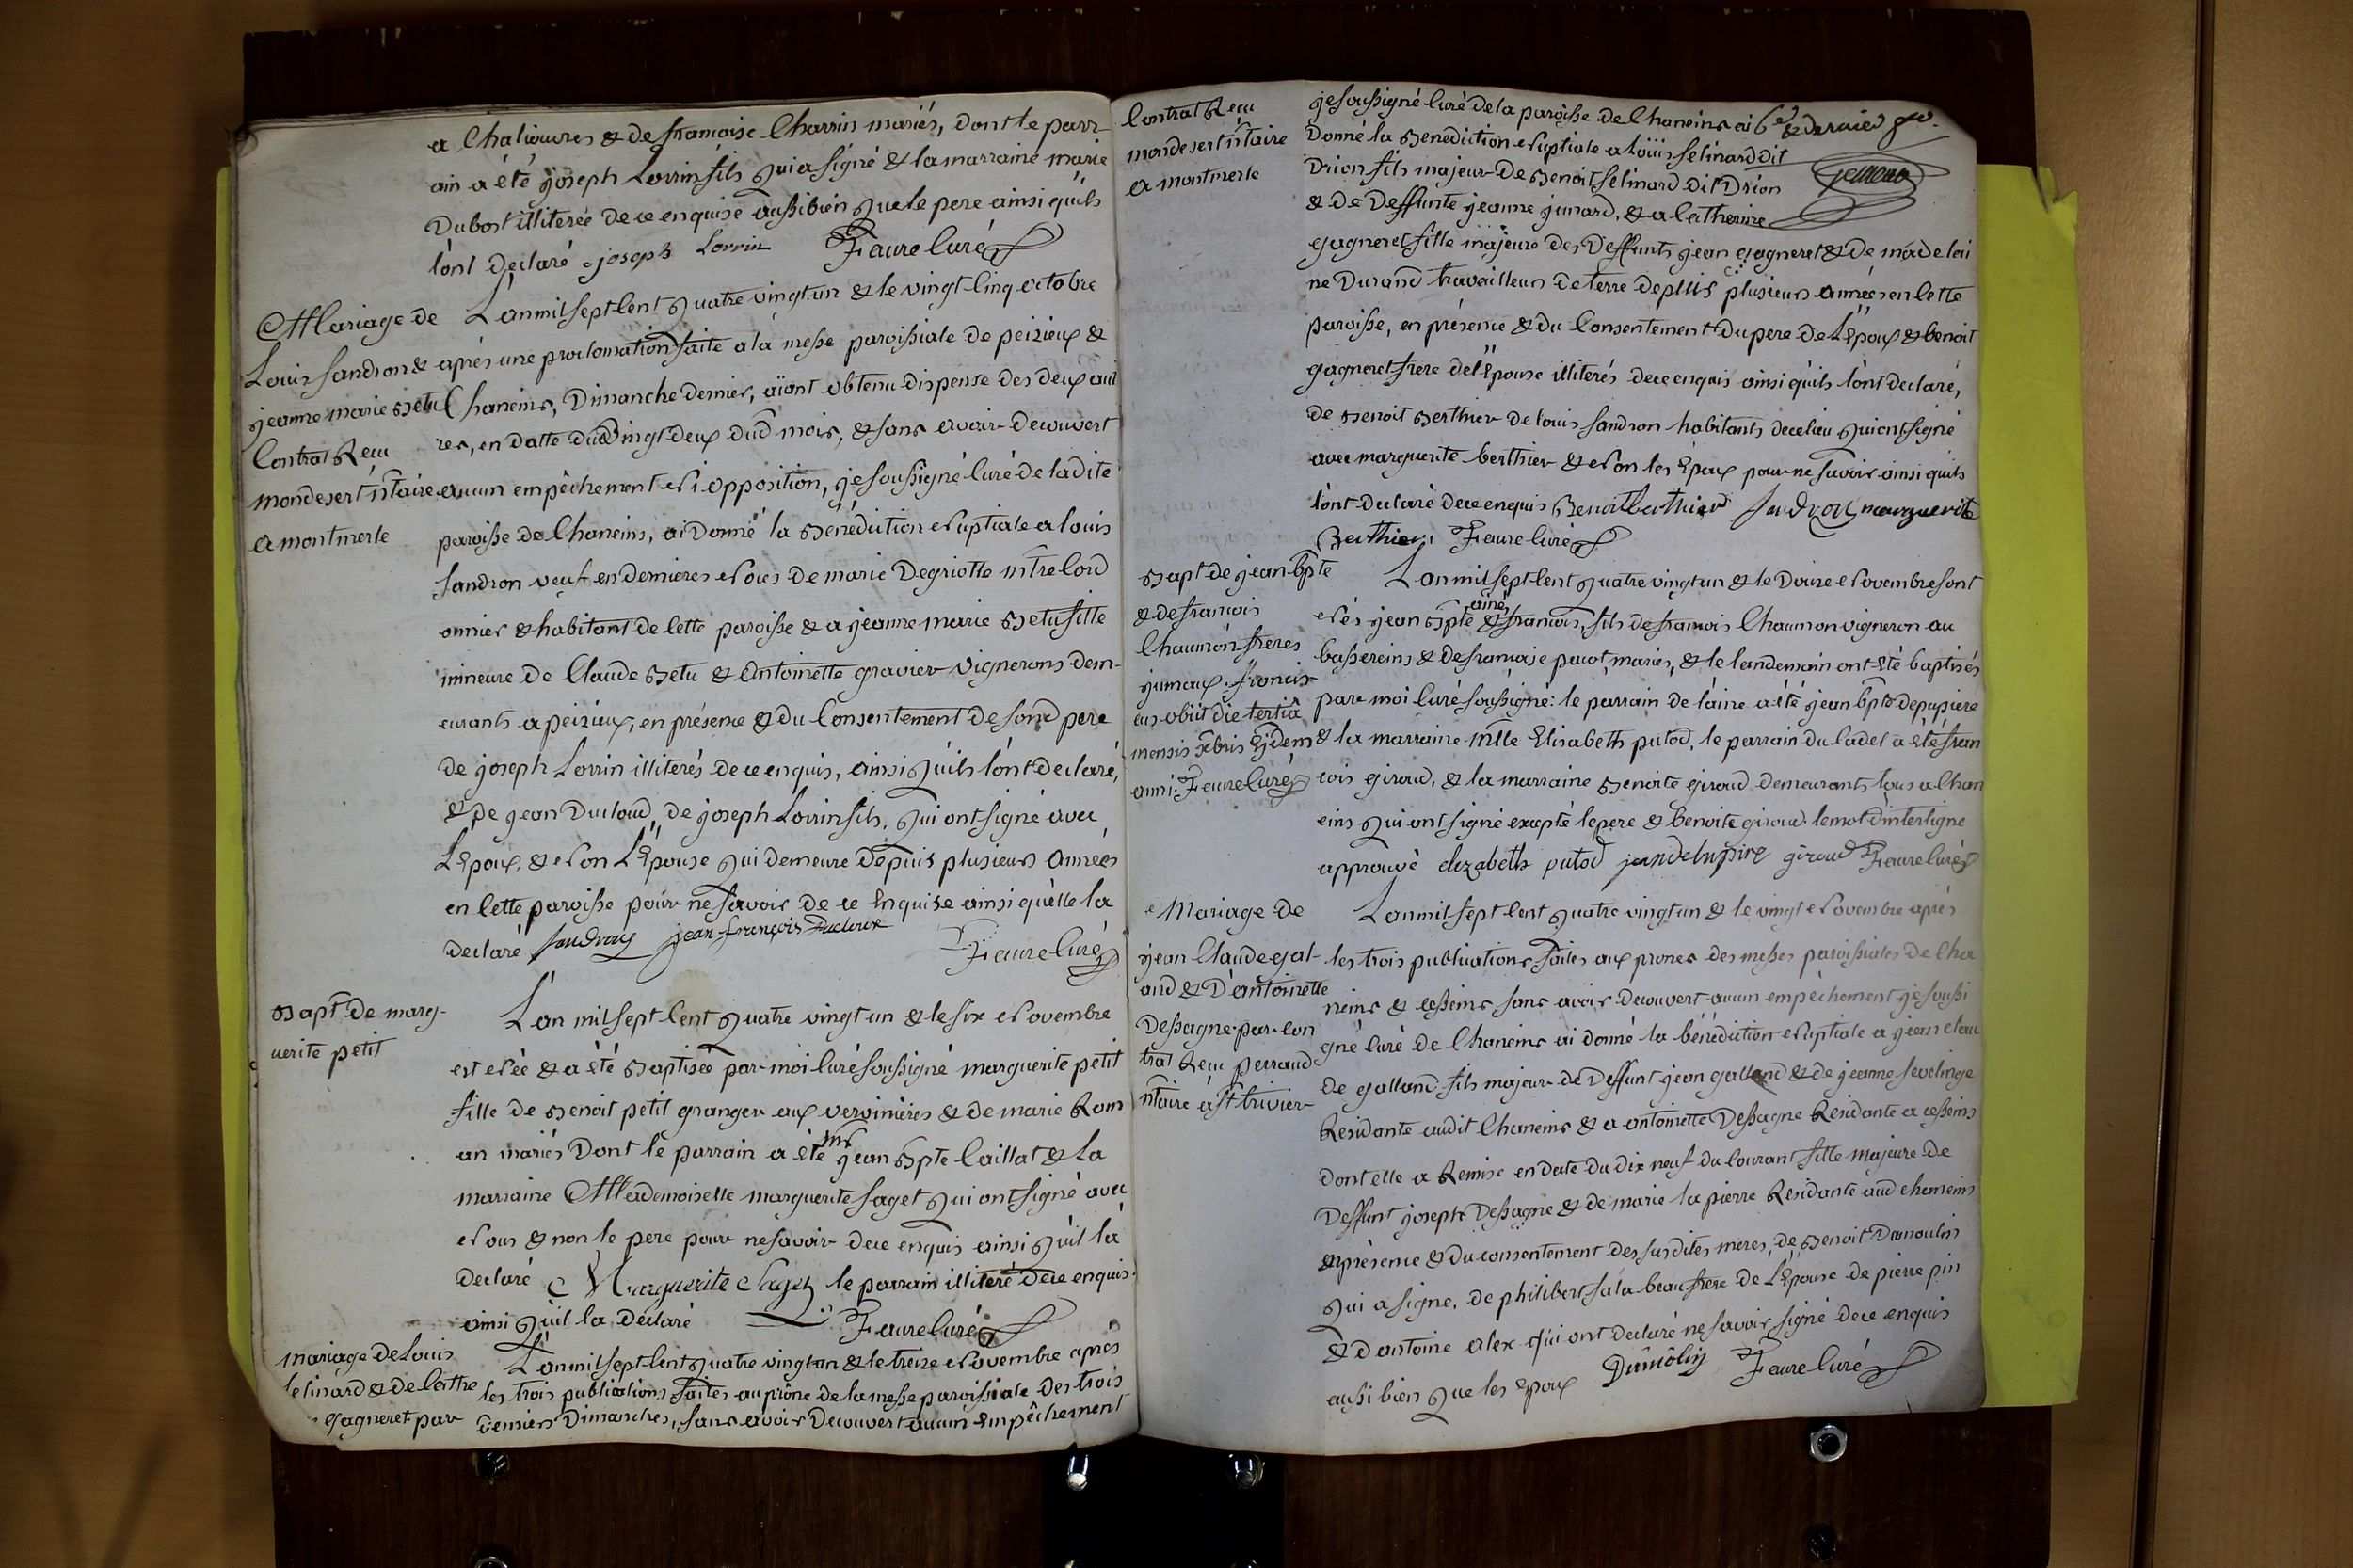 a Chaliouvres & de francoise Charrin mariés, dont le parr-
ain a été joseph Lorrin fils qui a signé & la marraine marie
Dubost illiterée de ce enquise aussi bien que le pere ainsi qu'ils
l'ont declaré joseph Lorrin Faure Curé
Mariage de
Louis Sandron &
jeanne marie Betu
Contrat Reçu
mondesert ntaire
a montmerle
L'an mil sept cent quatre vingt un & le vingt cinq octobre
après une proclomation faite a la messe paroissiale de peizieux &
Chaneins, Dimanche dernier, aïant obtenu dispense des deux aut
res, en datte du vingt deux dud mois, & sans avoir decouvert
aucun empêchement ni opposition, je soussigné Curé de ladite
paroisse de Chaneins, ai Donné la Bénédiction Nuptiale a louis
Sandron veuf en dernieres Noces de marie Degriotte mtre Cord
onnier & habitant de Cette paroisse & a jeanne marie Betu fille
mineure de Claude Betu & Antoinette gravier vignerons dem-
eurants a peizieux, en présence & du Consentement de sond pere
de joseph Lorrin illiterés de ce enquis, ainsi qu'ils l'ont declaré,
& de jean Ducloud, de joseph Lorrin fils, qui ont signé avec
L'Epoux, & Non L'Epouse qui demeure depuis plusieurs années
en Cette paroisse pour ne savoir de ce Enquise ainsi qu'elle la
declaré Sandron jean françois Ducloux Faure Curé
Bapt de marg-
uerite petit
L'an mil sept Cent quatre vingt un & le six Novembre
est Née & a été Baptisée par moi Curé soussigné marguerite petit
fille de Benoit petit granger aux vervinières & de marie Rom
an mariés Dont le parrain a été mr jean Bpte Caillat & La
marraine Mademoiselle marguerite Saget qui ont signé avec
Nous & non le pere pour ne savoir de ce enquis ainsi qu'il la
declaré Marguerite Saget le parrain illiteré de ce enquis
ainsi qu'il la declaré Faure Curé
mariage de Louis
Selinard & de Cathe
gagneret par
L'an mil sept Cent quatre vingt un & le treize Novembre après
les trois publications faites au prône de la messe paroissiale des trois
derniers Dimanches, sans avoir Decouvert aucun Empêchement
Contrat Reçu
mondesert ntaire
a montmerle
je soussigné Curé de la paroisse de Chaneins ai
Donné la Benediction Nuptiale a Loüis Selinard dit
Drion fils majeur de Benoit Selinard dit Drion
& de Deffunte jeanne junard, & a Catherine
gagneret fille majeure des Deffunts jean gagneret & de madelai
ne Durand travailleurs de terre depuis plusieurs années en Cette
paroisse, en présence & du Consentement du pere de L'Epoux & benoit
gagneret frere de l'Epouse illiterés de ce enquis ainsi qu'ils l'ont declaré,
de Benoit Berthier de louis Sandron habitants de ce lieu qui ont signé
avec marguerite berthier & Non les Epoux pour ne savoir ainsi qu'ils
l'ont declaré de ce enquis Benoit berthier Sandron marguerite
Berthier Faure Curé
Bapt de jean bpte
& de francois
Chaumon freres
jumeaux. francis-
cus obiit die tertiâ
mensis xbris Ejdem
anni. Faure Curé
L'an mil sept Cent quatre vingt un & le Douze Novembre sont
Nés jean Bpte ainé & francois, fils de francois Chaumon vigneron au
bassereins & de francoise pacot, mariés, & le landemain ont été baptisés
par moi Curé soussigné: le parrain de l'ainé a été jean bpte depupiere
& la marraine mlle Elisabeth putod, le parrain du Cadet a été fran
cois giroud, & la marraine Benoite giroud demeurants tous a Chan
eins qui ont signé excepté le pere & benoite giroud. le mot d'interligne
approuvé elizabeth putod giroud Faure Curé
Mariage de
jean Claude gal-
and & D'antoinette
Dessagne par Con
trat Reçu perraud
ntaire a St trivier
L'an mil sept Cent quatre vingt un & le vingt Novembre après
les trois publications faites aux prones des messes paroissiales de Cha
neins & Cesseins sans avoir decouvert aucun empêchement je soussi
gné Curé de Chaneins ai donné la bénédiction Nuptiale a jean Clau
de galland fils majeur de Deffunt jean galland & de jeanne sevelinge
Residante audit Chaneins & a antoinette Dessagne Residante a Cesseins
dont elle a Remise en Date du dix neuf du Courant fille majeure de
Deffunt joseph Dessagne & de marie la pierre Residante aud chaneins
en présence & du consentement des susdites meres, de Benoit Dumoulin
qui a signe, de philibert sala beau frere de L'Epouse de pierre pin
& d'antoine alex qui ont declaré ne savoir signé de ce enquis
aussi bien que les Epoux Dumolin Faure Curé